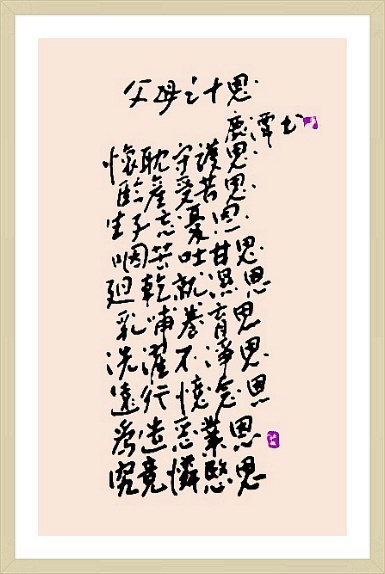 父母之十恩
鹿潭书
懷耽守護恩
臨產受苦恩
生子忘憂恩
咽苦吐甘恩
廻乾就濕恩
乳哺養育恩
洗濯不淨恩
遠行憶念恩
為造惡業恩
究竟憐愍恩